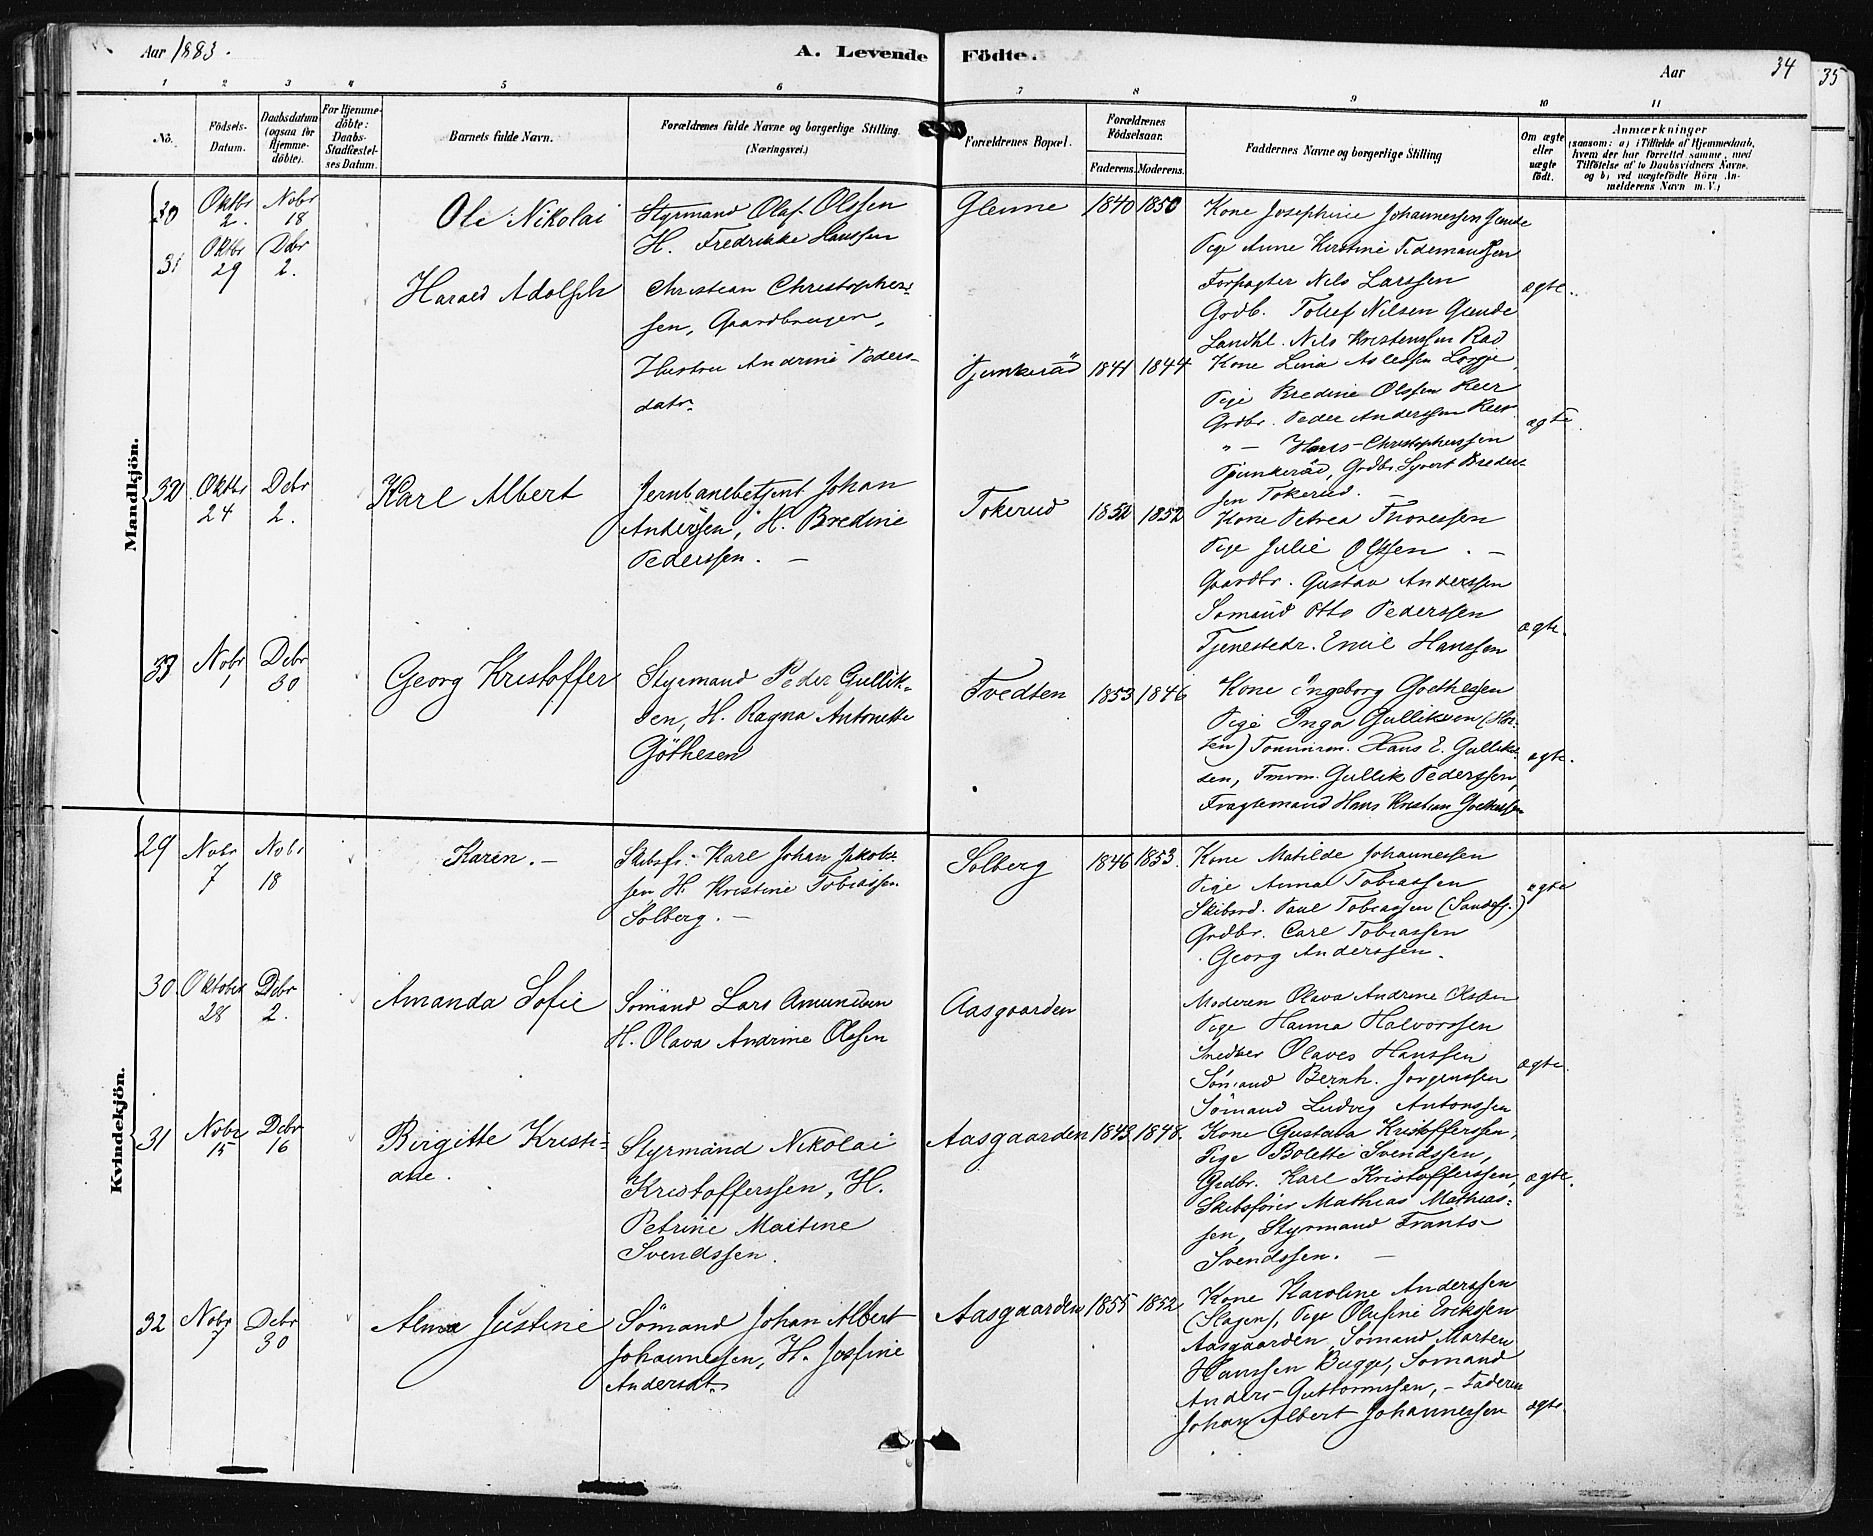 Aar 1883.
A. Levende Födte.
Aar
34
35
1 2 3 4 5 6 7 8 9 10 11
No.
Födsels-
Datum.
Daabsdatum
(ogsaa for
Hjemme-
döbte).
For Hjemme-
döbte:
Daabs-
Stadfæstel-
ses Datum.
Barnets fulde Navn.
Forældrenes fulde Navne og borgerlige Stilling.
(Næringsvei.)
Forældrenes Bopæl.
Forældrenes
Födselsaar.
Faderens. Moderens.
Faddernes Navne og borgerlige Stilling
Om ægte
eller
uægte
födt.
Anmærkninger
(saasom: a) i Tilfælde af Hjemmedaab,
hvem der har forrettet samme, med
Tilföielse af to Daabsvidners Navne,
og b) ved uægtefödte Börn An-
melderens Navn m. V.)
Mandkjön.
30 Oktbr 2. Nobr 18
Ole Nikolai
Styrmand Olaf Olssen
H. Fredrikke Hanssen
Glenne 1840 1850
Kone Josephine Johannessen
Pige Anne Kirstine Tidemandsen
Forpagter Nils Larssen
Grdb. Tollef Nilsen
Landhl. Nils Kristenssen Rød
ægte.
31 Oktbr 29 Dbr 2.
Harald Adolph
Christian Christopher-
sen, Gaardbruger,
Hustru Andrine Peders-
datr.
1841 1844
Kone Lina
Pige Bredine Olssen
Grdbr. Peder Anderssen
" — Hans Christophersen
Grdbr. Syvert Breder-
sen Tokerud.
ægte
32 Oktbr 24 Debr 2.
Karl Albert
Jernbanebetjent Johan
Anderssen, H. Bredine
Pederssen. —
Tokerud 1852 1852
Kone Petrea Thoressen
Pige Julie Olssen. —
Gaardbr. Gustav Anderssen
Sømand Otto Pederssen
Tjenestedr. Emil Hanssen
ægte.
33 Nobr 1 Debr 30
Georg Kristoffer
Styrmand Peder Gullik-
sen, H. Ragna Antonette
Göthesen
Tvedten 1853 1846
Kone Ingeborg Goethessen
Pige Inga Gulliksen
Tømmrm. Hans E. Gullik-
sen, Tmrm. Gullik Pederssen,
Fragtemand Hans Kristian Goethessen
ægte.
Kvindekjön.
29 Nobr 7 Nobr 18
Karen. —
Skibsf. Karl Johan Jakob-
sen H. Kristine Tobiassen
Solberg. —
Solberg 1846 1853.
Kone Matilde Johannessen
Pige Anna Tobiassen
Paul Tobiassen (Sandefj.)
Grdbr. Carl Tobiassen
Georg Anderssen.
ægte
30. Oktober 28 Debr 2.
Amanda Sofie
Sömand Lars Amundsen
H. Olava Andrine Olssen
Aasgaarden
Moderen Olava Andrine Olssen
Pige Hanna Halvorssen
Snedker Olaves Hanssen
Sömand Bernh. Jørgenssen
Sömand Ludvig Antonssen
ægte.
31 Nobr 15 Debr 16
Birgitte Kristi-
ane.
Styrmand Nikolai
Kristofferssen, H.
Petrine Martine
Svendssen.
Aasgaarden 1843 1848.
Kone Gustava Kristofferssen,
Pige Bolette Svendssen,
Grdbr. Karl Kristofferssen,
Skibsfører Mathias Mathias-
sen, Styrmand Frants
Svendssen. —
ægte.
32 Nobr 7 Debr 30
Alma Justine
Sömand Johan Albert
Johannessen, H. Josfine
Andersdt.
Aasgaarden 1855 1852
Kone Karoline Anderssen
(Slagen), Pige Olufine Erikssen
Aasgaarden, Sømand Morten
Hanssen Bugge, Sømand
Anders Guttormssen, - Faderen
Johan Albert Johannessen
ægte.